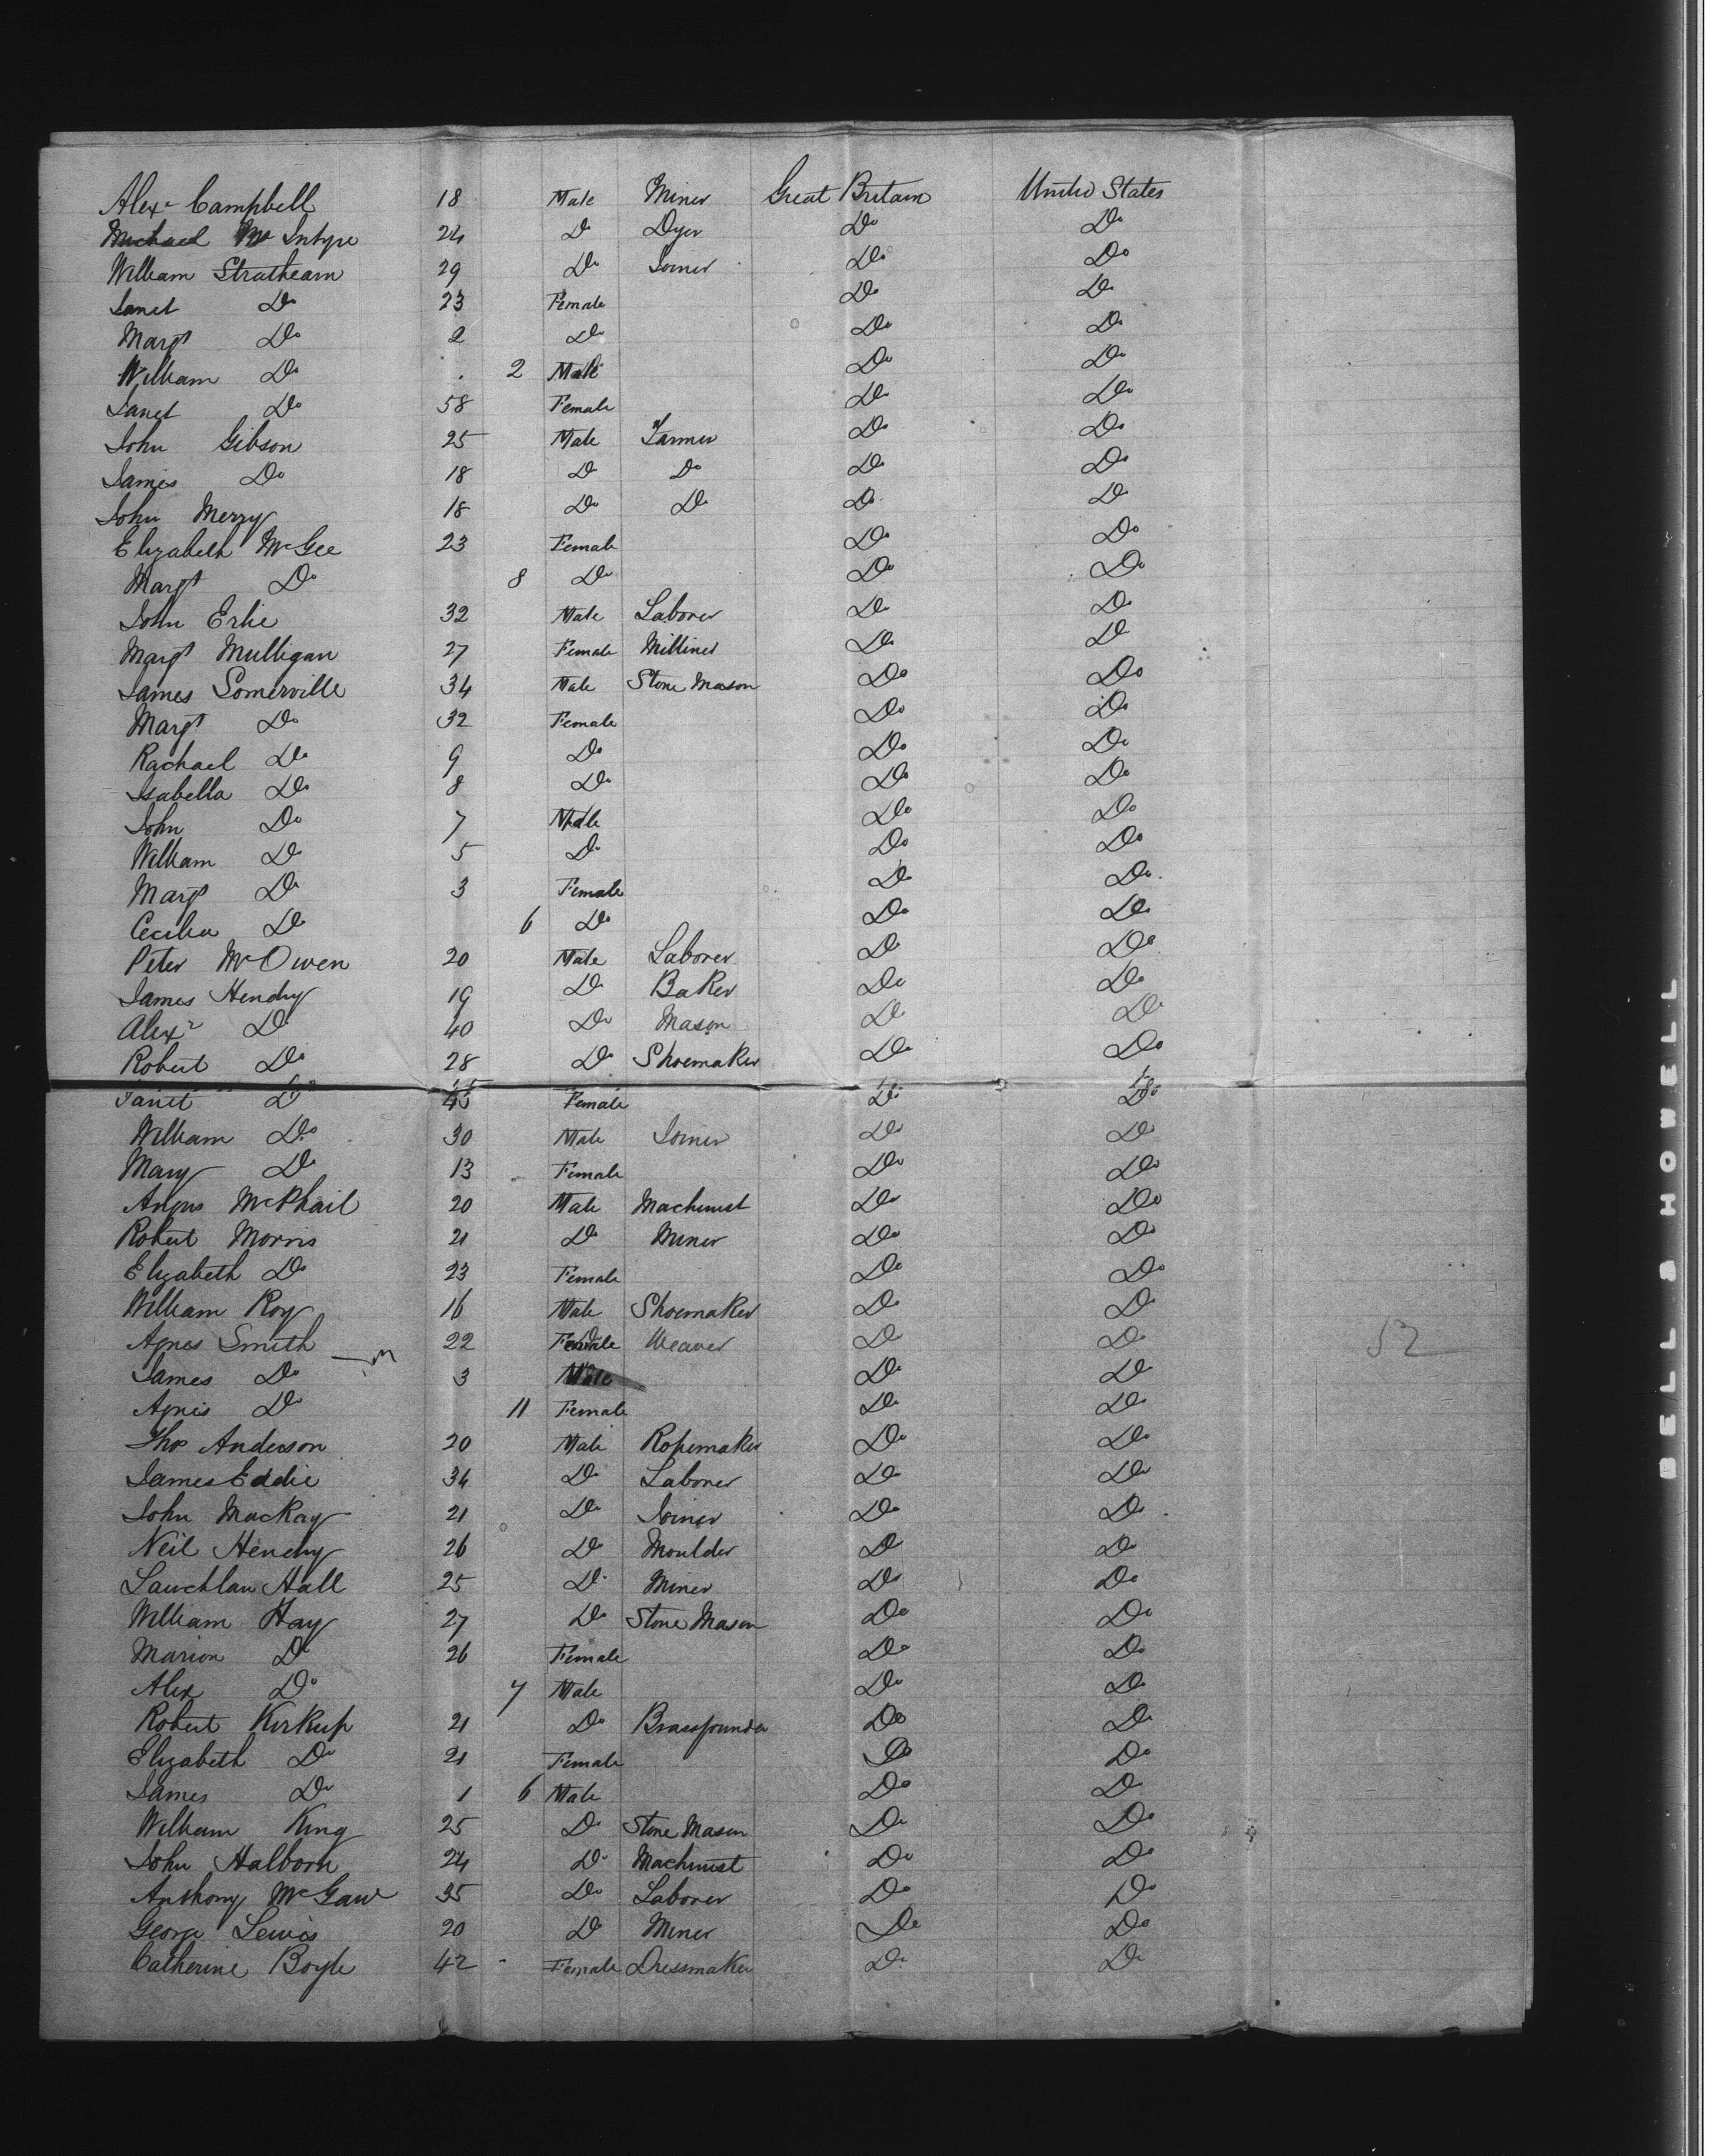 Alexr Campbell 18 Male Miner Great Britain United States
Michael Mc Intyre 24 Do Dyer Do Do
William Strathearn 29 Do Joiner Do Do
Janet Do 23 Female Do Do
Margt Do 2 Do Do Do
William Do 2 Male Do Do
Janet Do 58 Female Do Do
John Gibson 25 Male Farmer Do Do
James Do 18 Do Do Do Do
John Merry 18 Do Do Do Do
Elizabeth McGee 23 Female Do Do
Margt Do 8 Do Do Do
John Erlie 32 Male Laborer Do Do
Margt Mulligan 27 Female Milliner Do Do
James Somerville 34 Male Stone Mason Do Do
Margt Do 32 Female Do Do
Rachael Do 9 Do Do Do
Isabella Do 8 Do Do Do
John Do 7 Male Do Do
William Do 5 Do Do Do
Margt Do 3 Female Do Do
Cecilia Do 6 Do Do Do
Peter McOwen 20 Male Laborer Do Do
James Hendry 19 Do Baker Do Do
Alexr Do 40 Do Mason Do Do
Robert Do 28 Do Shoemaker Do Do
Janet Do Female Do Do
William Do 30 Male Joiner Do Do
Mary Do 13 Female Do Do
Angus McPhail 20 Male Machinist Do Do
Robert Morris 21 Do Miner Do Do
Elizabeth Do 23 Female Do Do
William Roy 16 Male Shoemaker Do Do
Agnes Smith 22 Female Weaver Do Do 52
James Do 3 Male Do Do
Agnes Do 11 Female Do Do
Thos Anderson 20 Male Ropemaker Do Do
James Eddie 34 Do Laborer Do Do
John MacKay 21 Do Joiner Do Do
Neil Hendry 26 Do Moulder Do Do
Lauchlan Hall 25 Do Miner Do Do
William Hay 27 Do Stone Mason Do Do
Marion Do 26 Female Do Do
Alex Do 7 Male Do Do
Robert Kirkup 21 Do Brassfounder Do Do
Elizabeth Do 21 Female Do Do
James Do 1 6 Male Do Do
William King 25 Do Stone Mason Do Do
John Halborn 24 Do Machinist Do Do
Anthony McGaw 35 Do Laborer Do Do
George Lewis 20 Do Miner Do Do
Catherine Boyle 42 Female Dressmaker Do Do
BELL & HOWELL